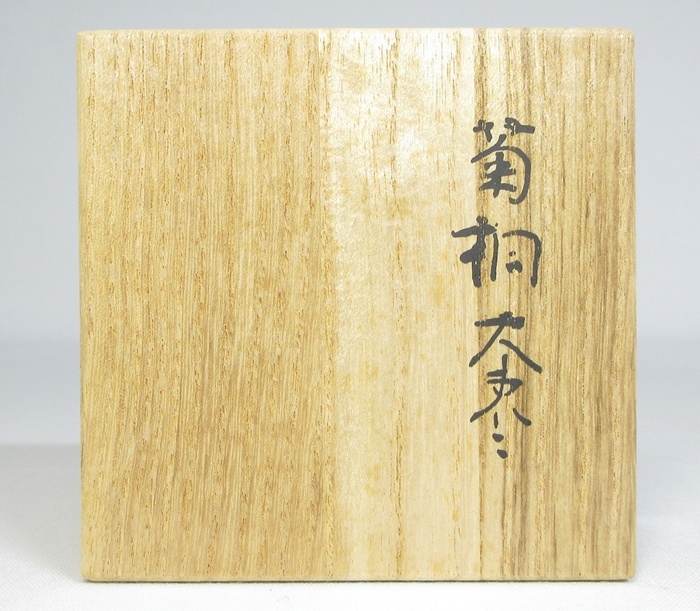 菊桐大棗